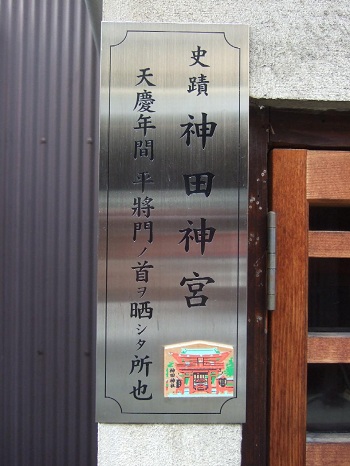 史蹟 神田神宮
天慶年間 平將門ノ首ヲ晒シタ所也
神田神社